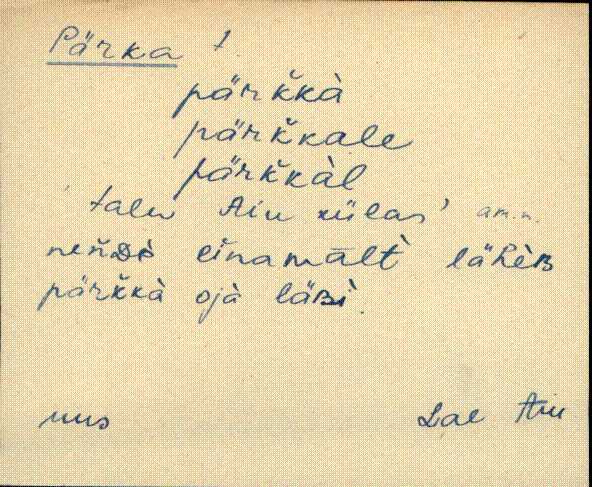 Pärka t.
pärk̆kà
pärk̆kale
pärk̆kàl
'talu Aiu külas' am.n.
neńdè einamālt̀ lähèʙ
pärk̆kà ojà läʙì.
uus
Lae Aiu